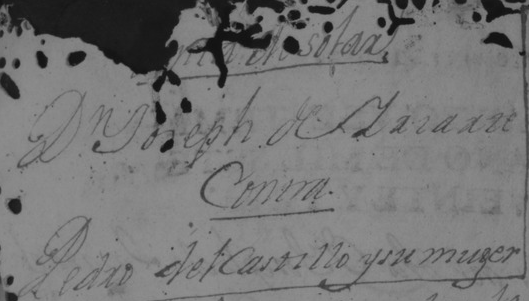 en solar
Dn Joseph de
Contra
Pedro del Castillo y su muger